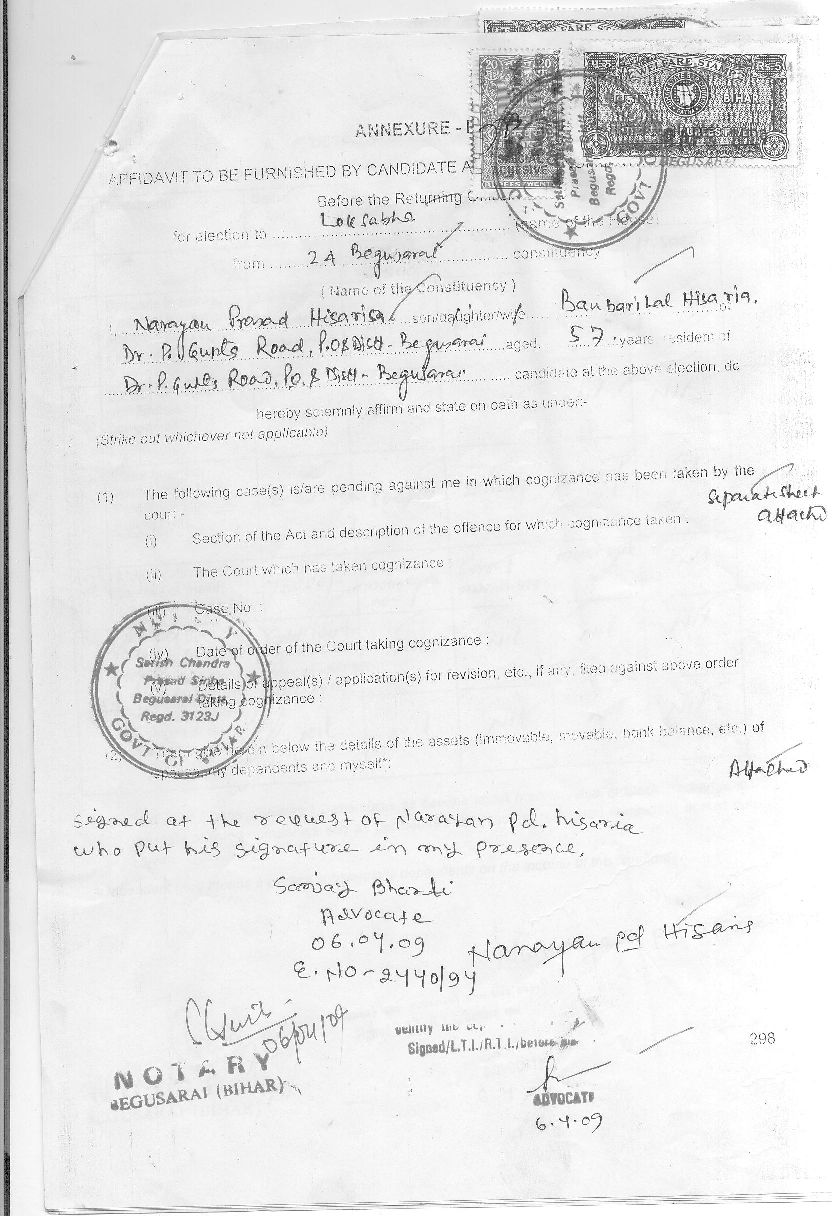 20 20
WELFARE STAMP
RS.5
BIHAR
ANNEXURE -
BEGUSARAI
AFFIDAVIT TO BE FURNISHED BY CANDIDATE
Before the Returning
for election to Loksabha (name of the House)
from 24 Begusarai constituency
( Name of the Constituency )
I, Narayan Prasad Hisaria son/daughter/wife Banbari Lal Hisaria.
Dr. P. Gupta Road, P.O & Distt - Begusarai aged 57 years resident of
Dr. P. Gupta Road, P.O. & Distt - Begusarai candidate at the above election, do
hereby solemnly affirm and state on oath as under:-
(Strike out whichever not applicable)
(1) The following case(s) is/are pending against me in which cognizance has been taken by the
court:-
Separate sheet
attached
(i) Section of the Act and description of the offence for which cognizance taken :
(ii) The Court which has taken cognizance :
(iii) Case No. :
(iv) Date of order of the Court taking cognizance :
(v) Details of appeal(s) / application(s) for revision, etc., if any, filed against above order
taking cognizance :
NOTARY
Satish Chandra
Prasad Sinha
Begusarai Distt.
Regd. 3123J
GOVT. OF BIHAR
below the details of the assets (immovable, movable, bank balance, etc.) of
my dependents and myself*:
Attached
Signed at the request of Narayan pd. hisaria
who put his signature in my presence.
Sanjay Bharti
Advocate
06.04.09
E. NO-2440/94
Narayan pd Hisaria
06/04/09
NOTARY
BEGUSARAI (BIHAR)
Signed/L.T.I./R.T.I./before me
ADVOCATE
6.4.09
298